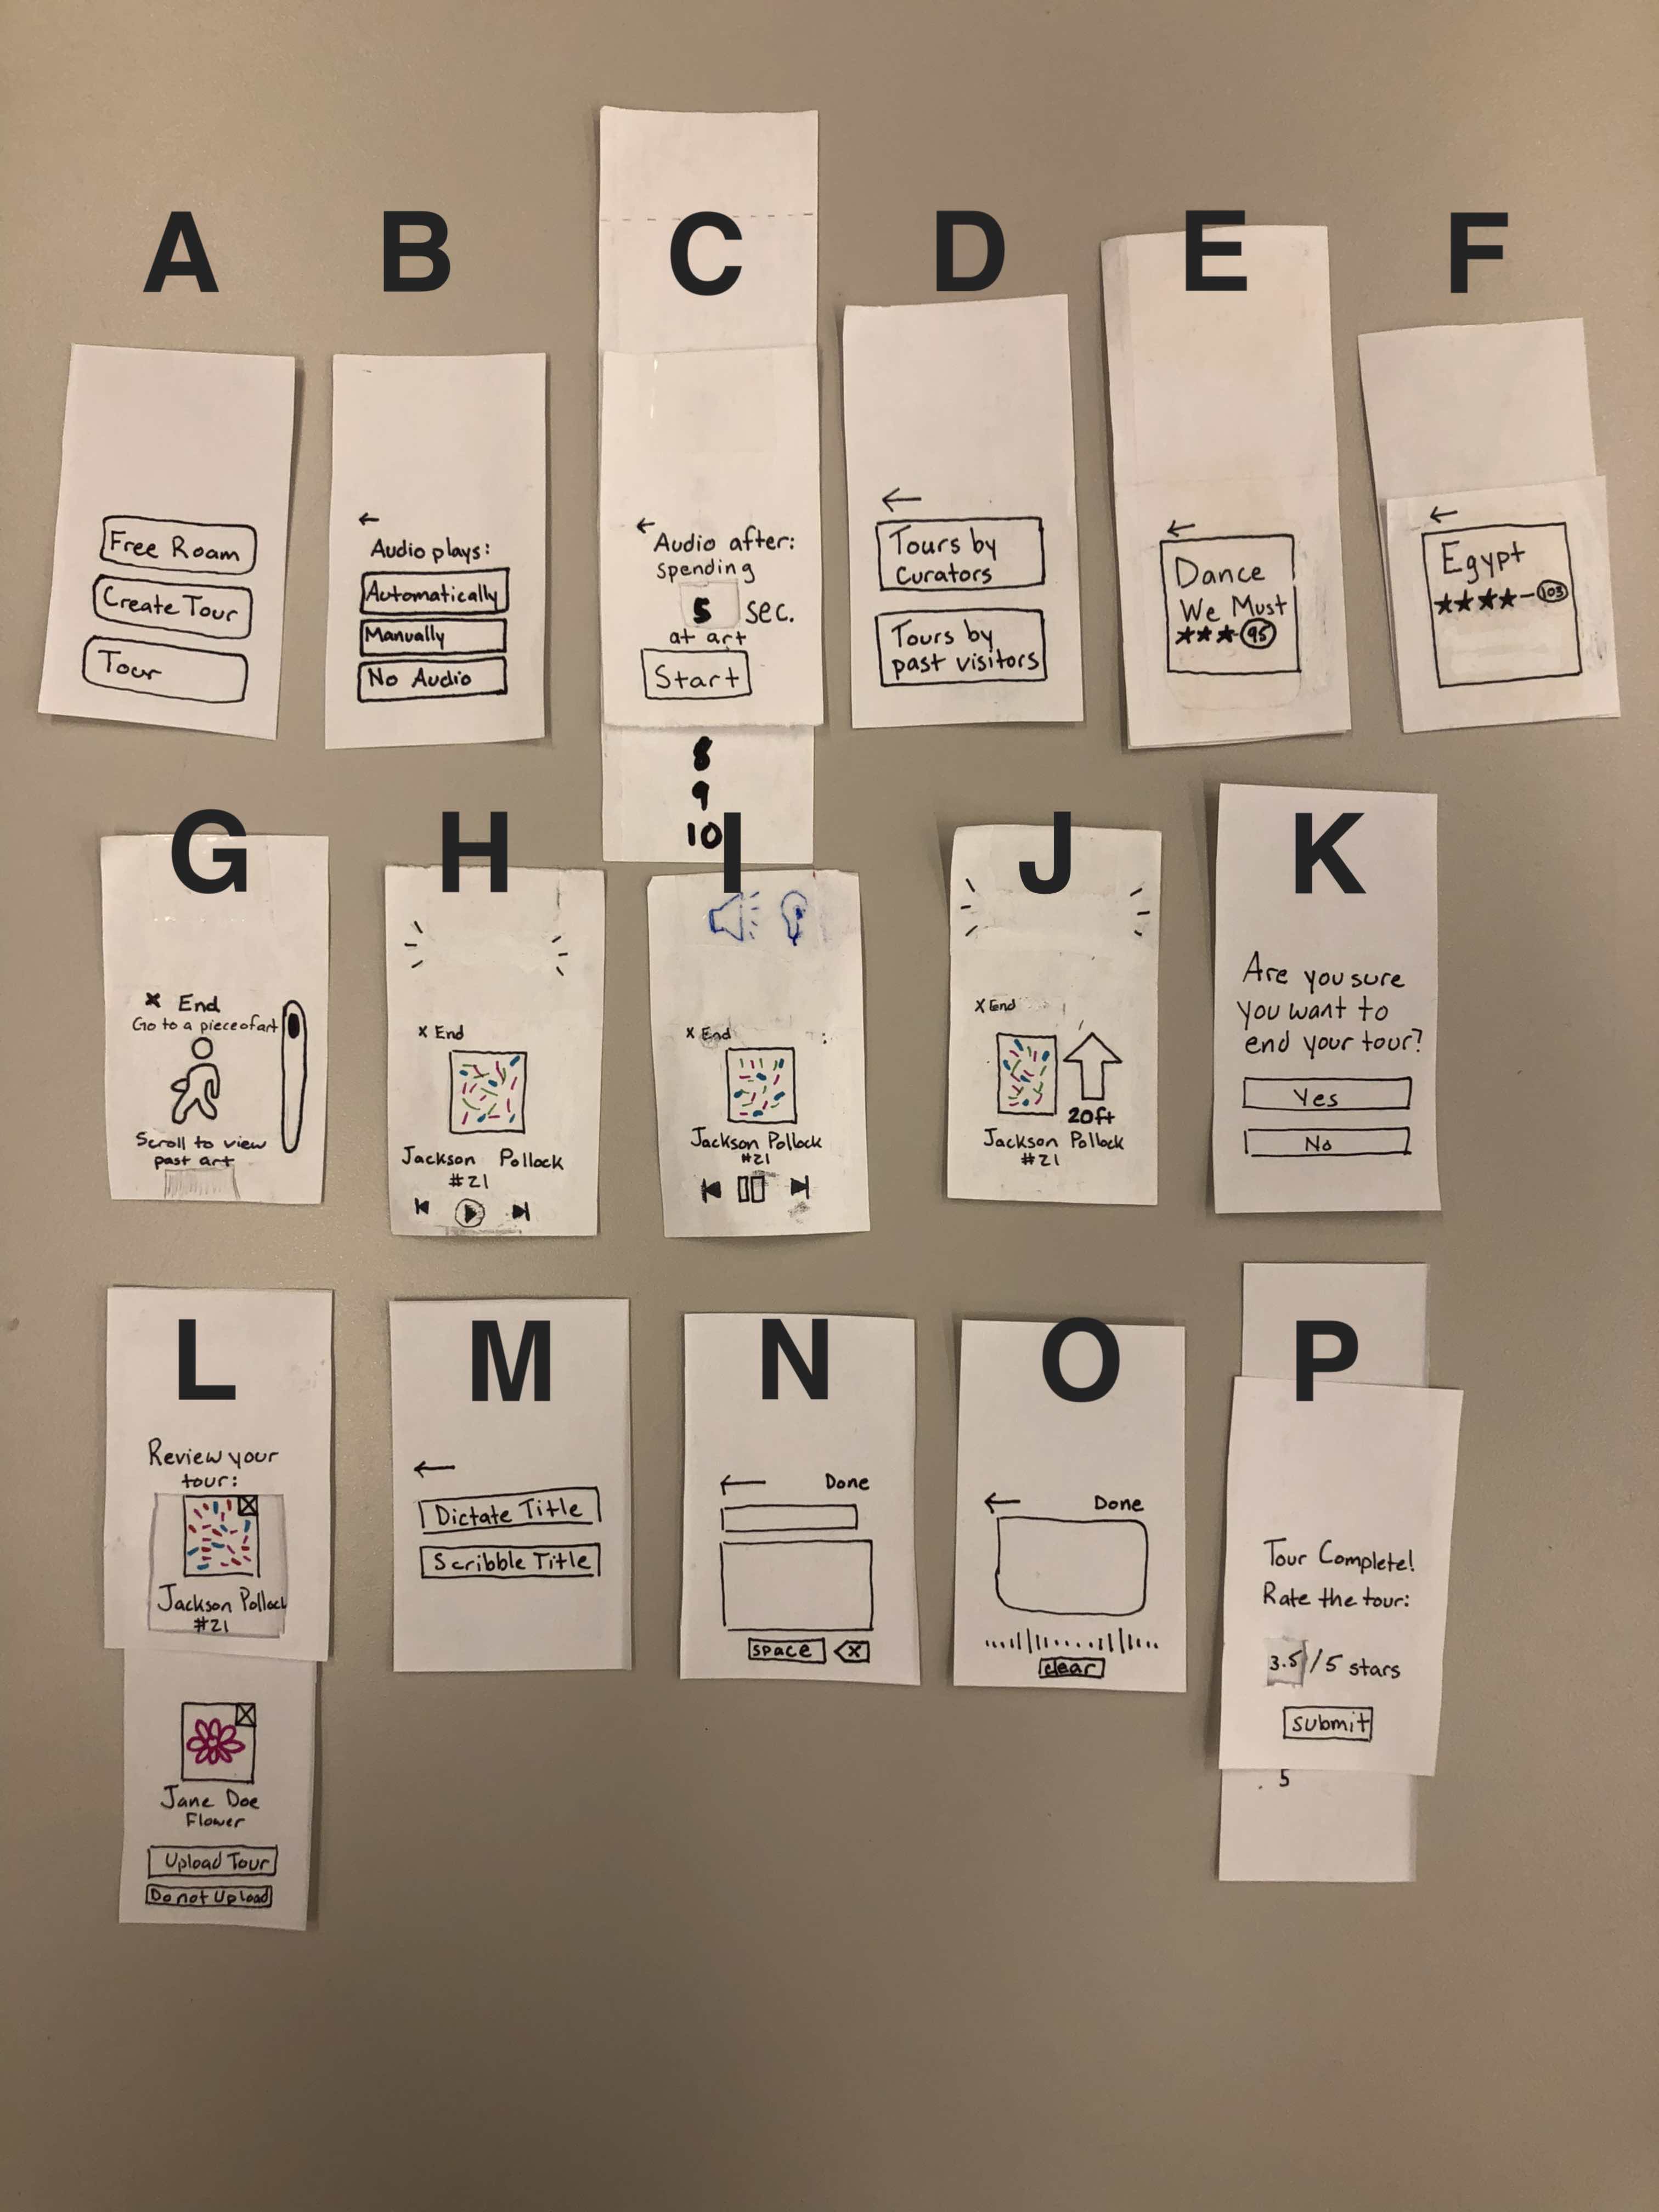 A
Free Roam
Create Tour
Tour
B
←
Audio plays:
Automatically
Manually
No Audio
C
←
Audio after:
spending
5 sec.
at art
Start
8
9
10
D
←
Tours by
Curators
Tours by
past visitors
E
←
Dance
We Must
★★★ 95
F
←
Egypt
★★★★- 103
G
x End
Go to a piece of art
Scroll to view
past art
H
x End
Jackson Pollock
#21
I
x End
Jackson Pollock
#21
J
x End
20ft
Jackson Pollock
#21
K
Are you sure
you want to
end your tour?
Yes
No
L
Review your
tour:
Jackson Pollock
#21
Jane Doe
Flower
Upload Tour
Do not Upload
M
←
Dictate Title
Scribble Title
N
← Done
space x
O
← Done
clear
P
Tour Complete!
Rate the tour:
3.5/5 stars
submit
5